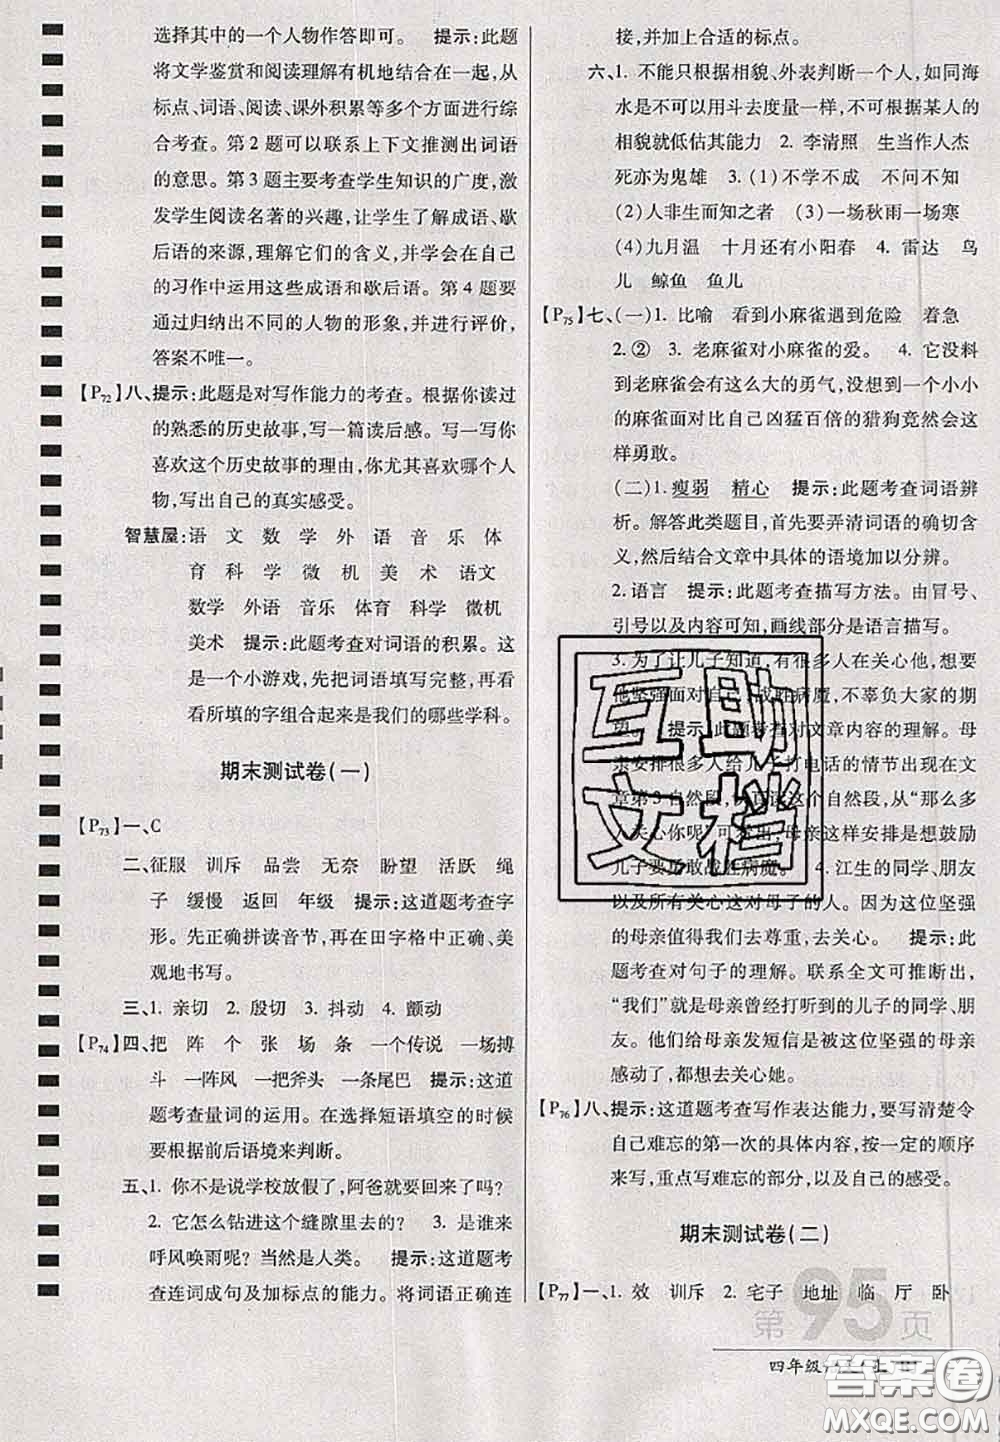 选择其中的一个人物作答即可。　提示:此题
将文学鉴赏和阅读理解有机地结合在一起,从
标点、词语、阅读、课外积累等多个方面进行综
合考查。第2题可以联系上下文推测出词语
的意思。第3题主要考查学生知识的广度,激
发学生阅读名著的兴趣,让学生了解成语、歇
后语的来源,理解它们的含义,并学会在自己
的习作中运用这些成语和歇后语。第4题要
通过归纳出不同的人物的形象,并进行评价,
答案不唯一。
【P72】八、提示:此题是对写作能力的考查。根据你读过
的熟悉的历史故事,写一篇读后感。写一写你
喜欢这个历史故事的理由,你尤其喜欢哪个人
物,写出自己的真实感受。
智慧屋:语　文　数　学　外　语　音　乐　体
育　科　学　微　机　美　术　语文
数学　外语　音乐　体育　科学　微机
美术　提示:此题考查对词语的积累。这
是一个小游戏,先把词语填写完整,再看
看所填的字组合起来是我们的哪些学科。
期末测试卷(一)
【P73】一、C
二、征服　训斥　品尝　无奈　盼望　活跃　绳
子　缓慢　返回　年级　提示:这道题考查字
形。先正确拼读音节,再在田字格中正确、美
观地书写。
三、1. 亲切　2. 殷切　3. 抖动　4. 颤动
【P74】四、把　阵　个　张　场　条　一个传说　一场搏
斗　一阵风　一把斧头　一条尾巴　提示:这道
题考查量词的运用。在选择短语填空的时候
要根据前后语境来判断。
五、1. 你不是说学校放假了,阿爸就要回来了吗?
2. 它怎么钻进这个缝隙里去的?　3. 是谁来
呼风唤雨呢?当然是人类。　提示:这道题考
查连词成句及加标点的能力。将词语正确连
接,并加上合适的标点。
六、1. 不能只根据相貌、外表判断一个人,如同海
水是不可以用斗去度量一样,不可根据某人的
相貌就低估其能力　2. 李清照　生当作人杰
死亦为鬼雄　3. (1)不学不成　不问不知
(2)人非生而知之者　(3)一场秋雨一场寒
(4)九月温　十月还有小阳春　4. 雷达　鸟
儿　鲸鱼　鱼儿
【P75】七、(一)1. 比喻　看到小麻雀遇到危险　着急
2. ②　3. 老麻雀对小麻雀的爱。　4. 它没料
到老麻雀会有这么大的勇气,没想到一个小小
的麻雀面对比自己凶猛百倍的猎狗竟然会这
样勇敢。
(二)1. 瘦弱　精心　提示:此题考查词语辨
析。解答此类题目,首先要弄清词语的确切含
义,然后结合文章中具体的语境加以分辨。
2. 语言　提示:此题考查描写方法。由冒号、
引号以及内容可知,画线部分是语言描写。
3. 为了让儿子知道,有很多人在关心他,想要
他坚强面对自己,战胜病魔,不辜负大家的期
望。　提示:此题考查对文章内容的理解。母
亲安排很多人给儿子打电话的情节出现在文
章第3自然段,从读这个自然段,从“那么多
人关心你呢”可看出,母亲这样安排是想鼓励
儿子要敢战胜病魔。　4. 江生的同学、朋友
以及所有关心这对母子的人。因为这位坚强
的母亲值得我们去尊重,去关心。　提示:此
题考查对句子的理解。联系全文可推断出,
“我们”就是母亲曾经打听到的儿子的同学、朋
友。他们给母亲发短信是被这位坚强的母亲
感动了,都想去关心她。
【P76】八、提示:这道题考查写作表达能力,要写清楚令
自己难忘的第一次的具体内容,按一定的顺序
来写,重点写难忘的部分,以及自己的感受。
期末测试卷(二)
【P77】一、1. 效　训斥　2. 宅子　地址　临　厅　卧
第95页
四年级
互助文档
答案圈
MXQE.COM